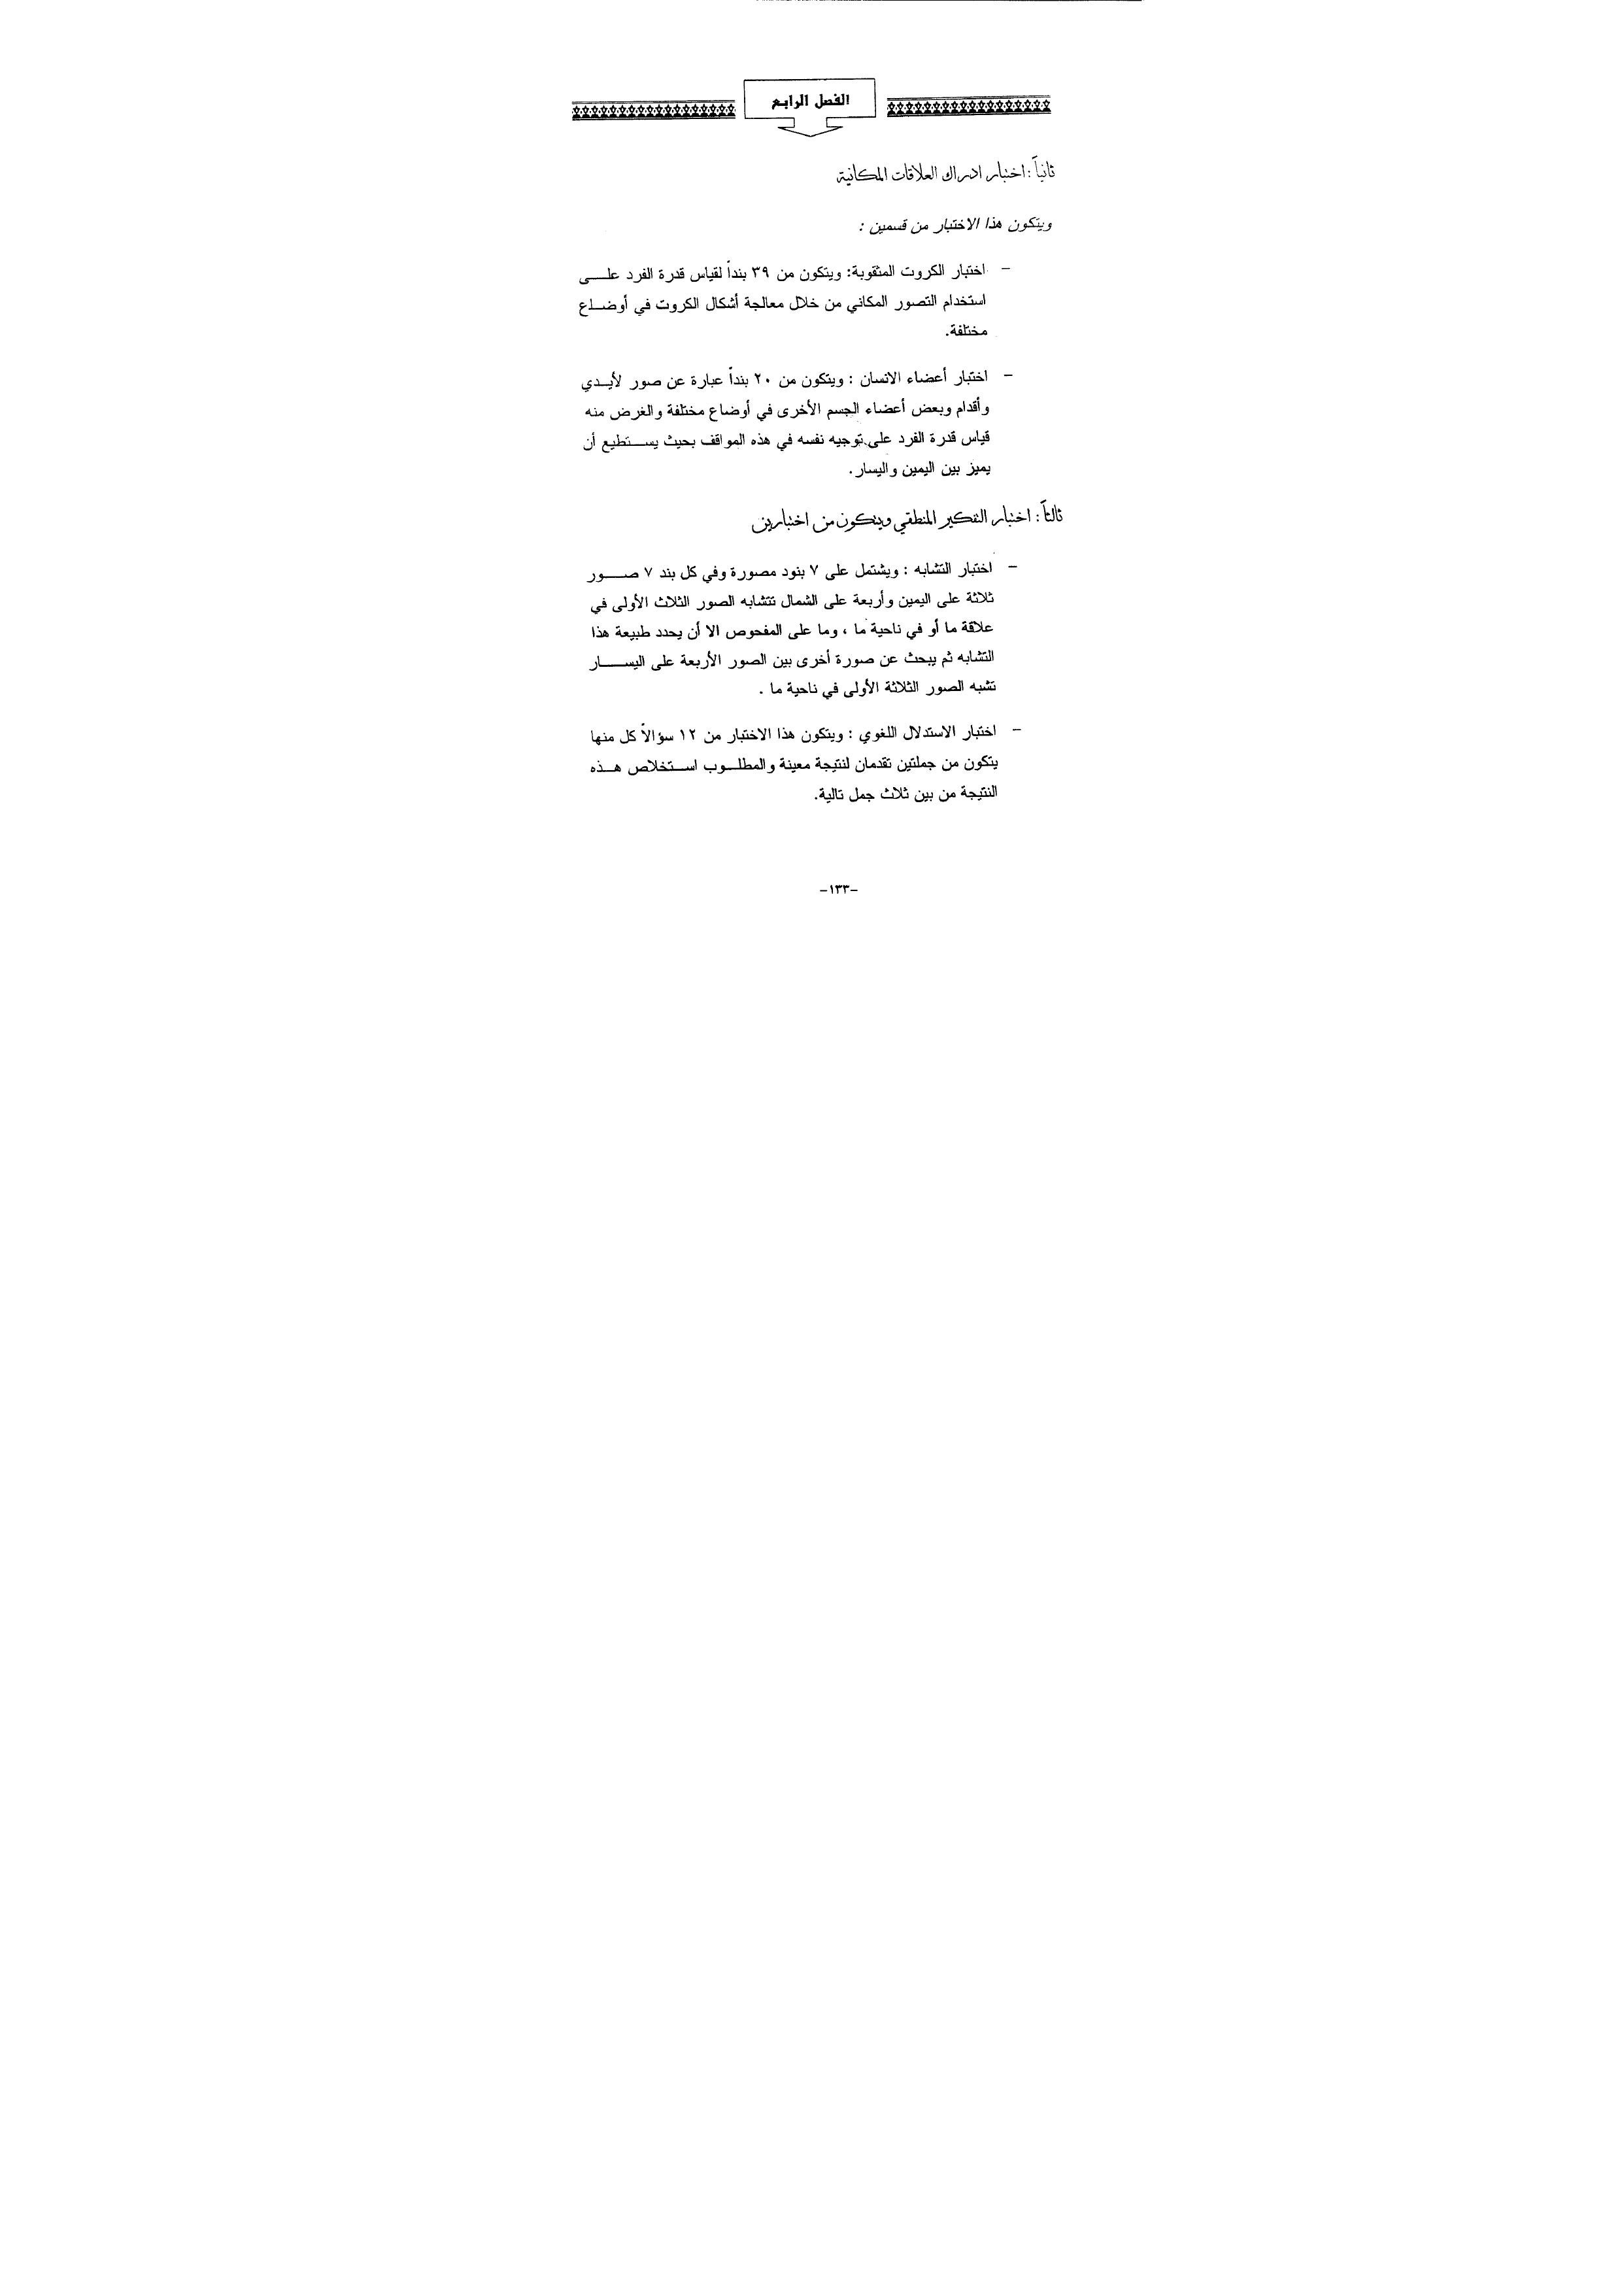 الفصل الرابع
ثانياً : اختبار ادراك العلاقات المكانية
ويتكون هذا الاختبار من قسمين :
– اختبار الكروت المثقوبة: ويتكون من ٣٩ بنداً لقياس قدرة الفرد علـــى
استخدام التصور المكاني من خلال معالجة أشكال الكروت في أوضـــاع
مختلفة.
– اختبار أعضاء الانسان : ويتكون من ٢٠ بنداً عبارة عن صور لأيـــدي
وأقدام وبعض أعضاء الجسم الأخرى في أوضاع مختلفة والغرض منه
قياس قدرة الفرد على توجيه نفسه في هذه المواقف بحيث يســـتطيع أن
يميز بين اليمين واليسار.
ثالثاً : اختبار التفكير المنطقي ويتكون من اختبارين
– اختبار التشابه : ويشتمل على ٧ بنود مصورة وفي كل بند ٧ صـــور
ثلاثة على اليمين وأربعة على الشمال تتشابه الصور الثلاث الأولى في
علاقة ما أو في ناحية ما ، وما على المفحوص الا أن يحدد طبيعة هذا
التشابه ثم يبحث عن صورة أخرى بين الصور الأربعة على اليســـار
تشبه الصور الثلاثة الأولى في ناحية ما .
– اختبار الاستدلال اللغوي : ويتكون هذا الاختبار من ١٢ سؤالاً كل منها
يتكون من جملتين تقدمان لنتيجة معينة والمطلـــوب اســـتخلاص هـــذه
النتيجة من بين ثلاث جمل تالية.
–١٣٣–